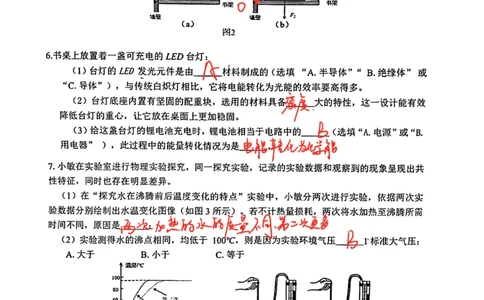 墙壁
书架
墙壁
F₂
书架
(a)
(b)
图2
6.书桌上放置着一盏可充电的 LED 台灯:
(1)台灯的 LED 发光元件是由 A 材料制成的(选填 “A.半导体”“ B.绝缘体” 或
“C.导体”),与传统白炽灯相比,它将电能转化为光能的效率要高得多。
(2)台灯底座内置有坚固的配重块,选用的材料具备 密度 大的特性,这一设计能有效
降低台灯的重心,让它放在桌面上更加稳固。
(3)给这盏台灯的锂电池充电时,锂电池相当于电路中的 B (选填“A.电源”或“B.
用电器” ),此过程中的能量转化情况为是 电能转化为化学能
7. 小敏在实验室进行物理实验探究,同一探究实验,记录的实验数据和观察到的现象呈现出共
性特征,同时也存在明显差异。
(1)在“探究水在沸腾前后温度变化的特点”实验中,小敏分两次进行实验,依据两次实
验数据分别绘制出水温变化图像(如图 3 所示),若不计热量损耗,两次将水加热至沸腾所需
时间不同,原因是 两次加热的水的质量不同,第二次更多
(2)实验测得水的沸点相同,均低于 100℃,则是因为实验环境气压 B 1 标准大气压:
A. 大于 B. 小于 C. 等于
温度/℃
100